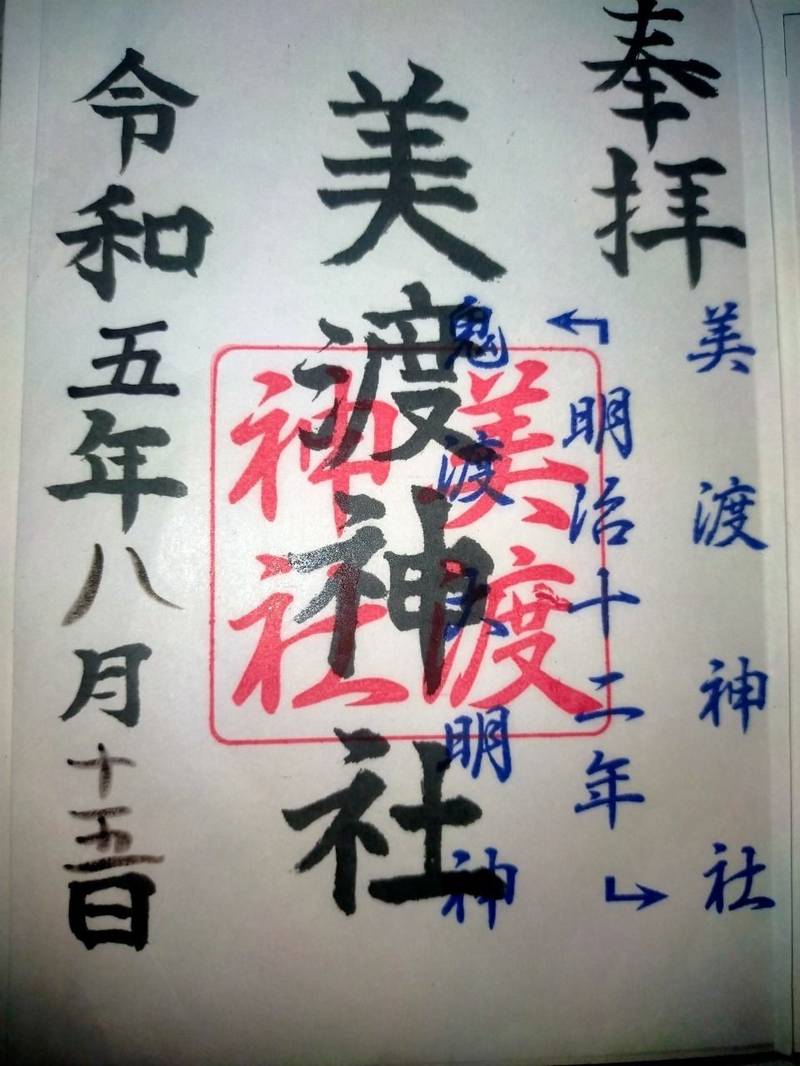 奉拝
美渡神社
明治十二年
鬼渡大明神
美渡神社
美渡
神社
令和五年八月十五日